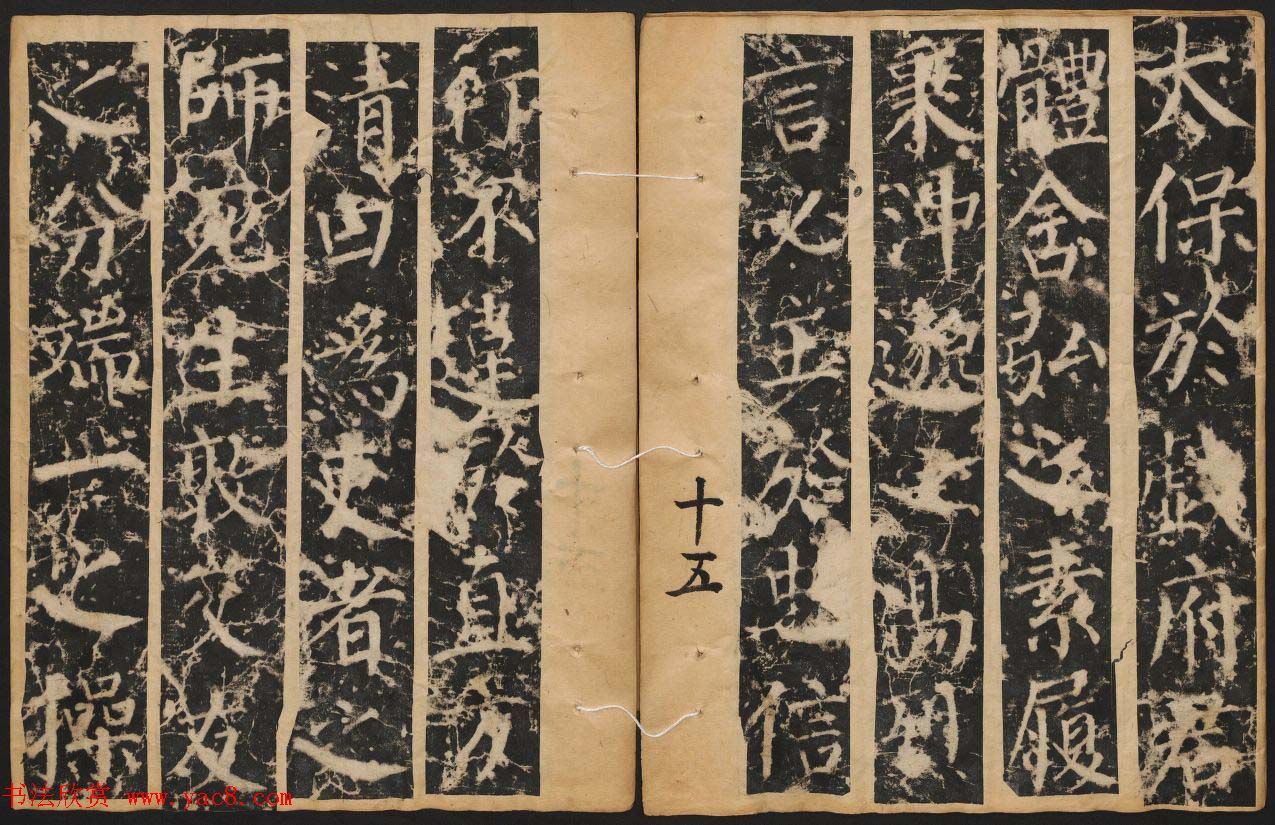 太保於戲府君
體含弘之素履
秉沖邈之高明
言必主於忠信
十五
行不違於直方
清白為吏者之
師死生敦交友
之分端一之操
书法欣赏 www.yac8.com